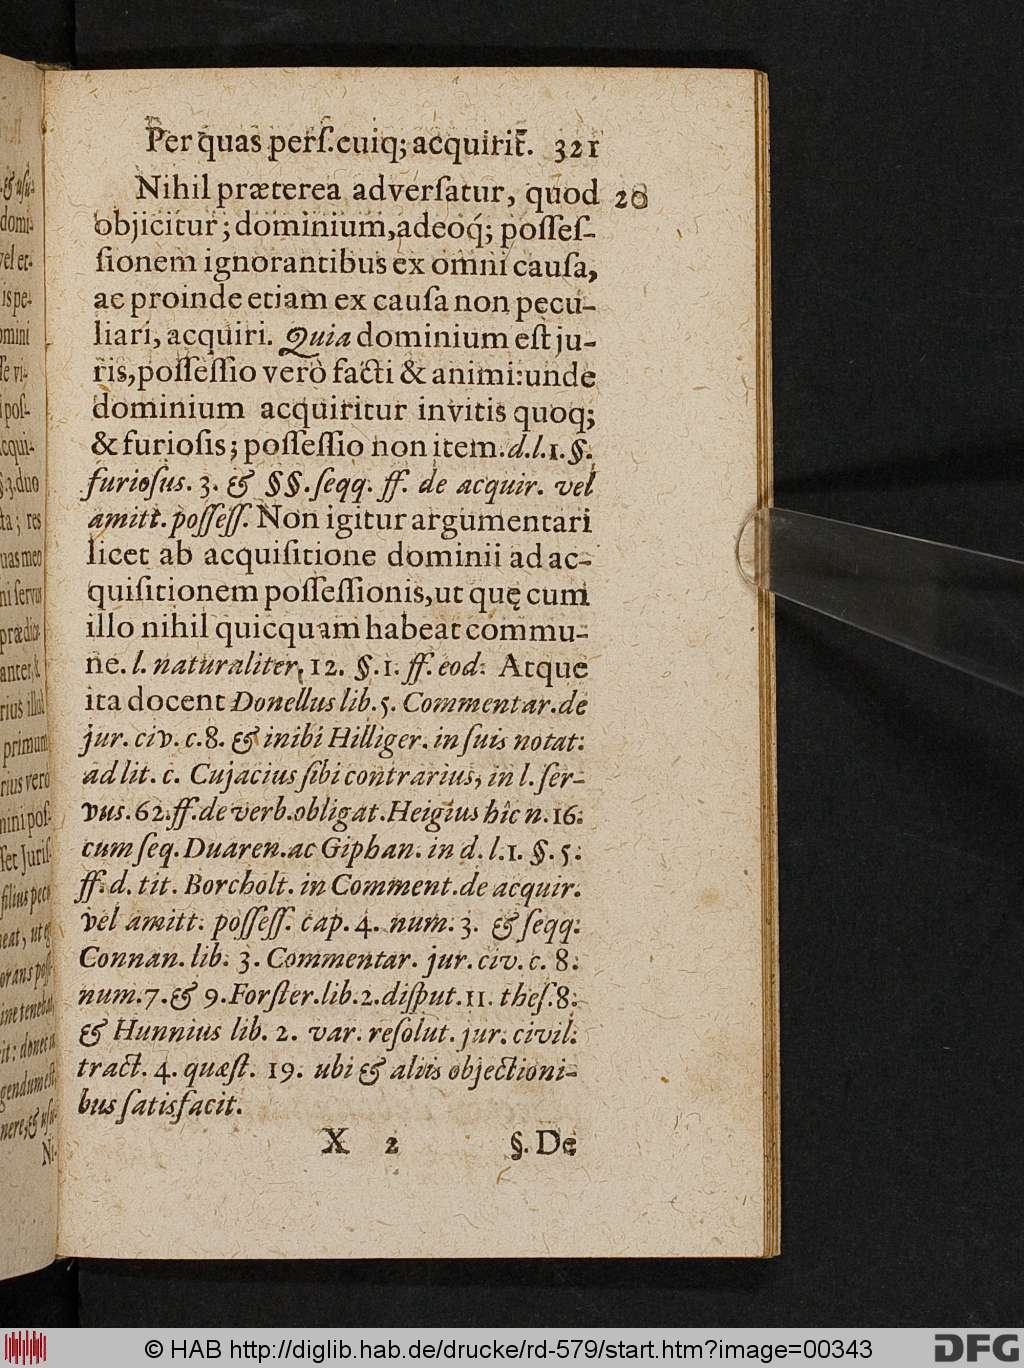 &usu-
domi-
vel et-
is pe-
omini
se vi-
pos-
cqui-
§.3.duo
ta; res
uas meo
ni servus
prædica-
anter, &
rius illud
primum
rius verò
mini pos-
set Juris-
filius pecu
neat, ut eg
orans poss-
ine tenebat
it: donec a
gendum est,
nere; & usu-
Ni-
Per quas perſ. cuiq; acquirit̃. 321
Nihil præterea adverſatur, quod 20
objicitur; dominium, adeoq́; poſſeſ-
ſionem ignorantibus ex omni cauſa,
ac proinde etiam ex cauſa non pecu-
liari, acquiri. Quia dominium eſt ju-
ris, poſſeſſio verò facti & animi: unde
dominium acquiritur invitis quoq;
& furioſis; poſſeſſio non item. d.l.1. §.
furioſus. 3. & §§. ſeqq. ff. de acquir. vel
amitt. poſſeſſ. Non igitur argumentari
licet ab acquiſitione dominii ad ac-
quiſitionem poſſeſſionis, ut quę cum
illo nihil quicquam habeat commu-
ne. l. naturaliter, 12. §. 1. ff. eod. Atque
ita docent Donellus lib. 5. Commentar. de
jur. civ. c. 8. & inibi Hilliger. in ſuis notat.
ad lit. c. Cujacius ſibi contrarius, in l. ſer-
vus. 62. ff. de verb. obligat. Heigius hîc n. 16.
cum ſeq. Duaren. ac Giphan. in d. l. 1. §. 5.
ff. d. tit. Borcholt. in Comment. de acquir.
vel amitt. poſſeſſ. cap. 4. num. 3. & ſeqq.
Connan. lib. 3. Commentar. jur. civ. c. 8.
num. 7. & 9. Forſter. lib. 2. diſput. 11. theſ. 8.
& Hunnius lib. 2. var. reſolut. jur. civil.
tract. 4. quæſt. 19. ubi & aliis objectioni-
bus ſatisfacit.
X 2 §. De
© HAB http://diglib.hab.de/drucke/rd-579/start.htm?image=00343 DFG